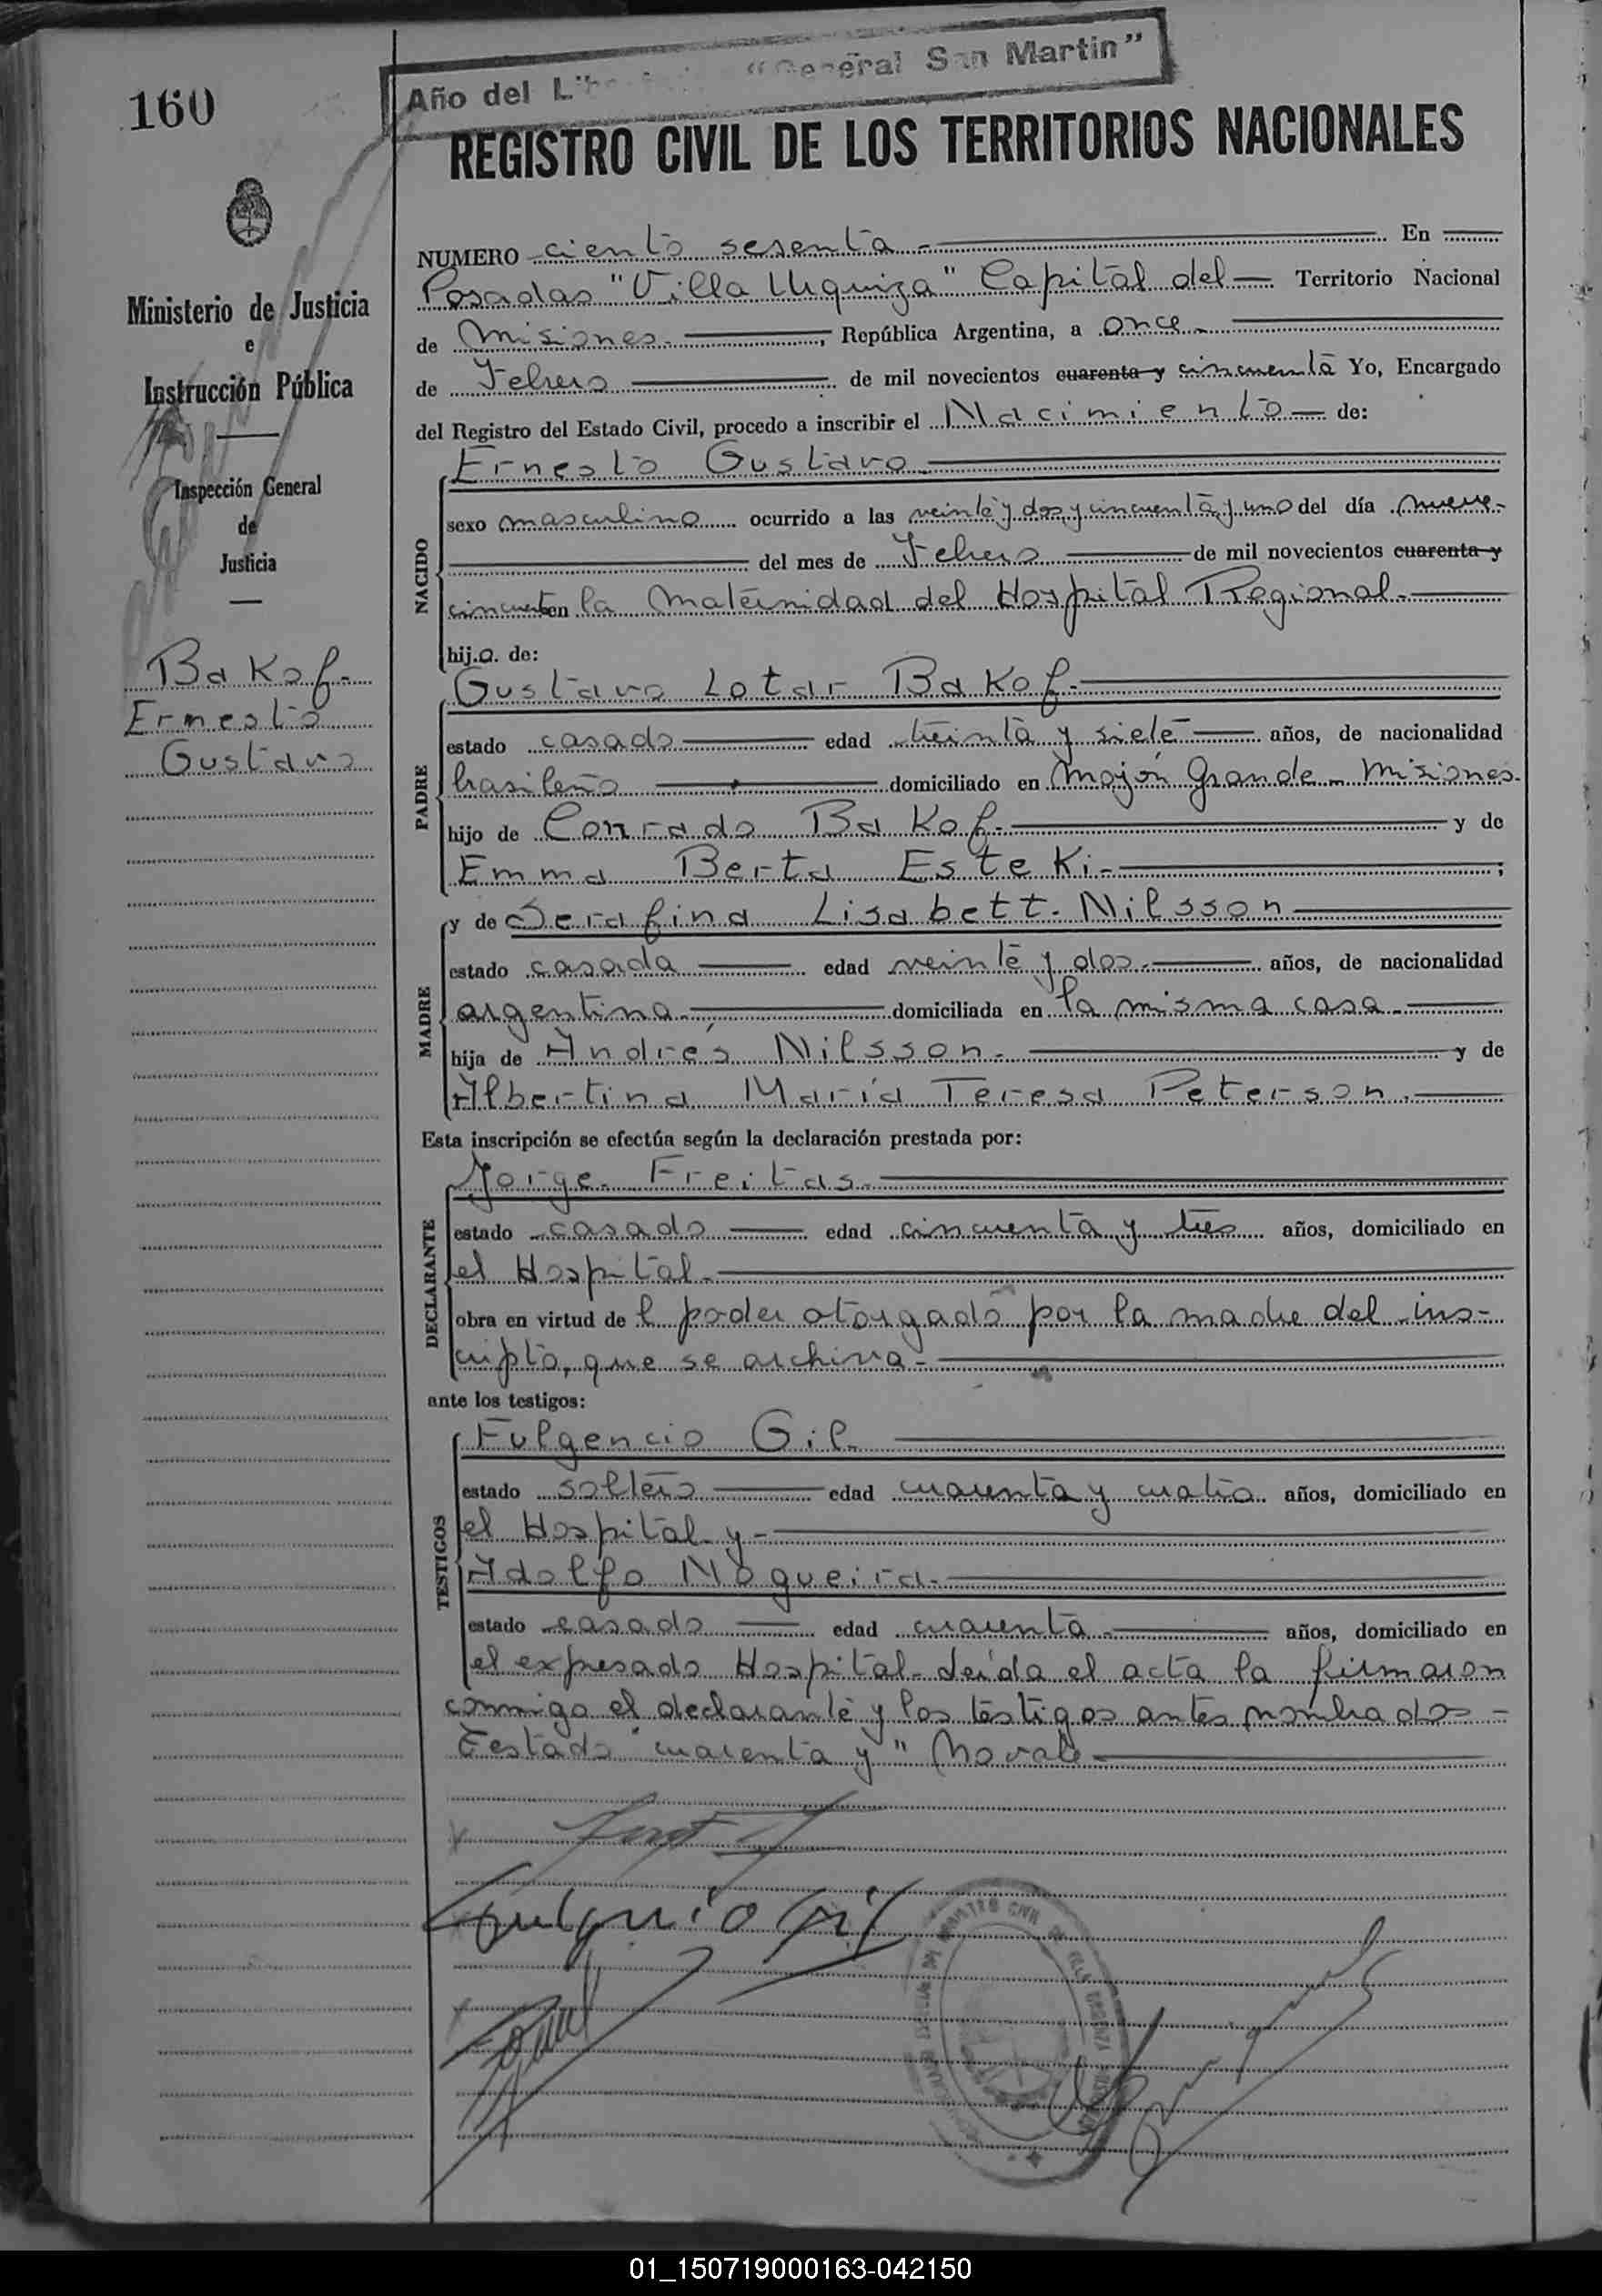 160
Año del "General San Martin"
REGISTRO CIVIL DE LOS TERRITORIOS NACIONALES
Ministerio de Justicia
e
Instrucción Pública
Inspección General
de
Justicia
Bakof-
Ernesto
Gustavo
NUMERO ciento sesenta.- En
Posadas "Villa Urquiza" Capital del Territorio Nacional
de Misiones.- , República Argentina, a once.-
de Febrero de mil novecientos cuarenta y cincuenta Yo, Encargado
del Registro del Estado Civil, procedo a inscribir el Nacimiento de:
NACIDO
Ernesto Gustavo.-
sexo masculino ocurrido a las veinte y dos y cincuenta y uno del día nueve-
del mes de Febrero de mil novecientos cuarenta y
cincuenta en la Maternidad del Hospital Regional.-
hijo de:
PADRE
Gustavo Lotar Bakof.-
estado casado edad treinta y siete años, de nacionalidad
brasileño domiciliado en Mojón Grande - Misiones.
hijo de Conrado Bakof.- y de
Emma Berta Esteki.- ;
MADRE
y de Serafina Lisabett-Nilsson
estado casada edad veinte y dos.- años, de nacionalidad
argentina.- domiciliada en la misma casa.-
hija de Andrés Nilsson.- y de
Albertina María Teresa Peterson.-
Esta inscripción se efectúa según la declaración prestada por:
DECLARANTE
Jorge Freitas.-
estado casado edad cincuenta y tres años, domiciliado en
el Hospital.-
obra en virtud de l poder otorgado por la madre del ins-
cripto, que se archiva.-
ante los testigos:
TESTIGOS
Fulgencio Gil.
estado soltero edad cuarenta y cuatro años, domiciliado en
el Hospital y-
Adolfo Nogueira.-
estado casado edad cuarenta.- años, domiciliado en
el expresado Hospital- Leída el acta la firmaron
conmigo el declarante y los testigos antes nombrados-
Testado "cuarenta y" No vale-
Fulgencio Gil
REGISTRO CIVIL DE VILLA URQUIZA
01_150719000163-042150